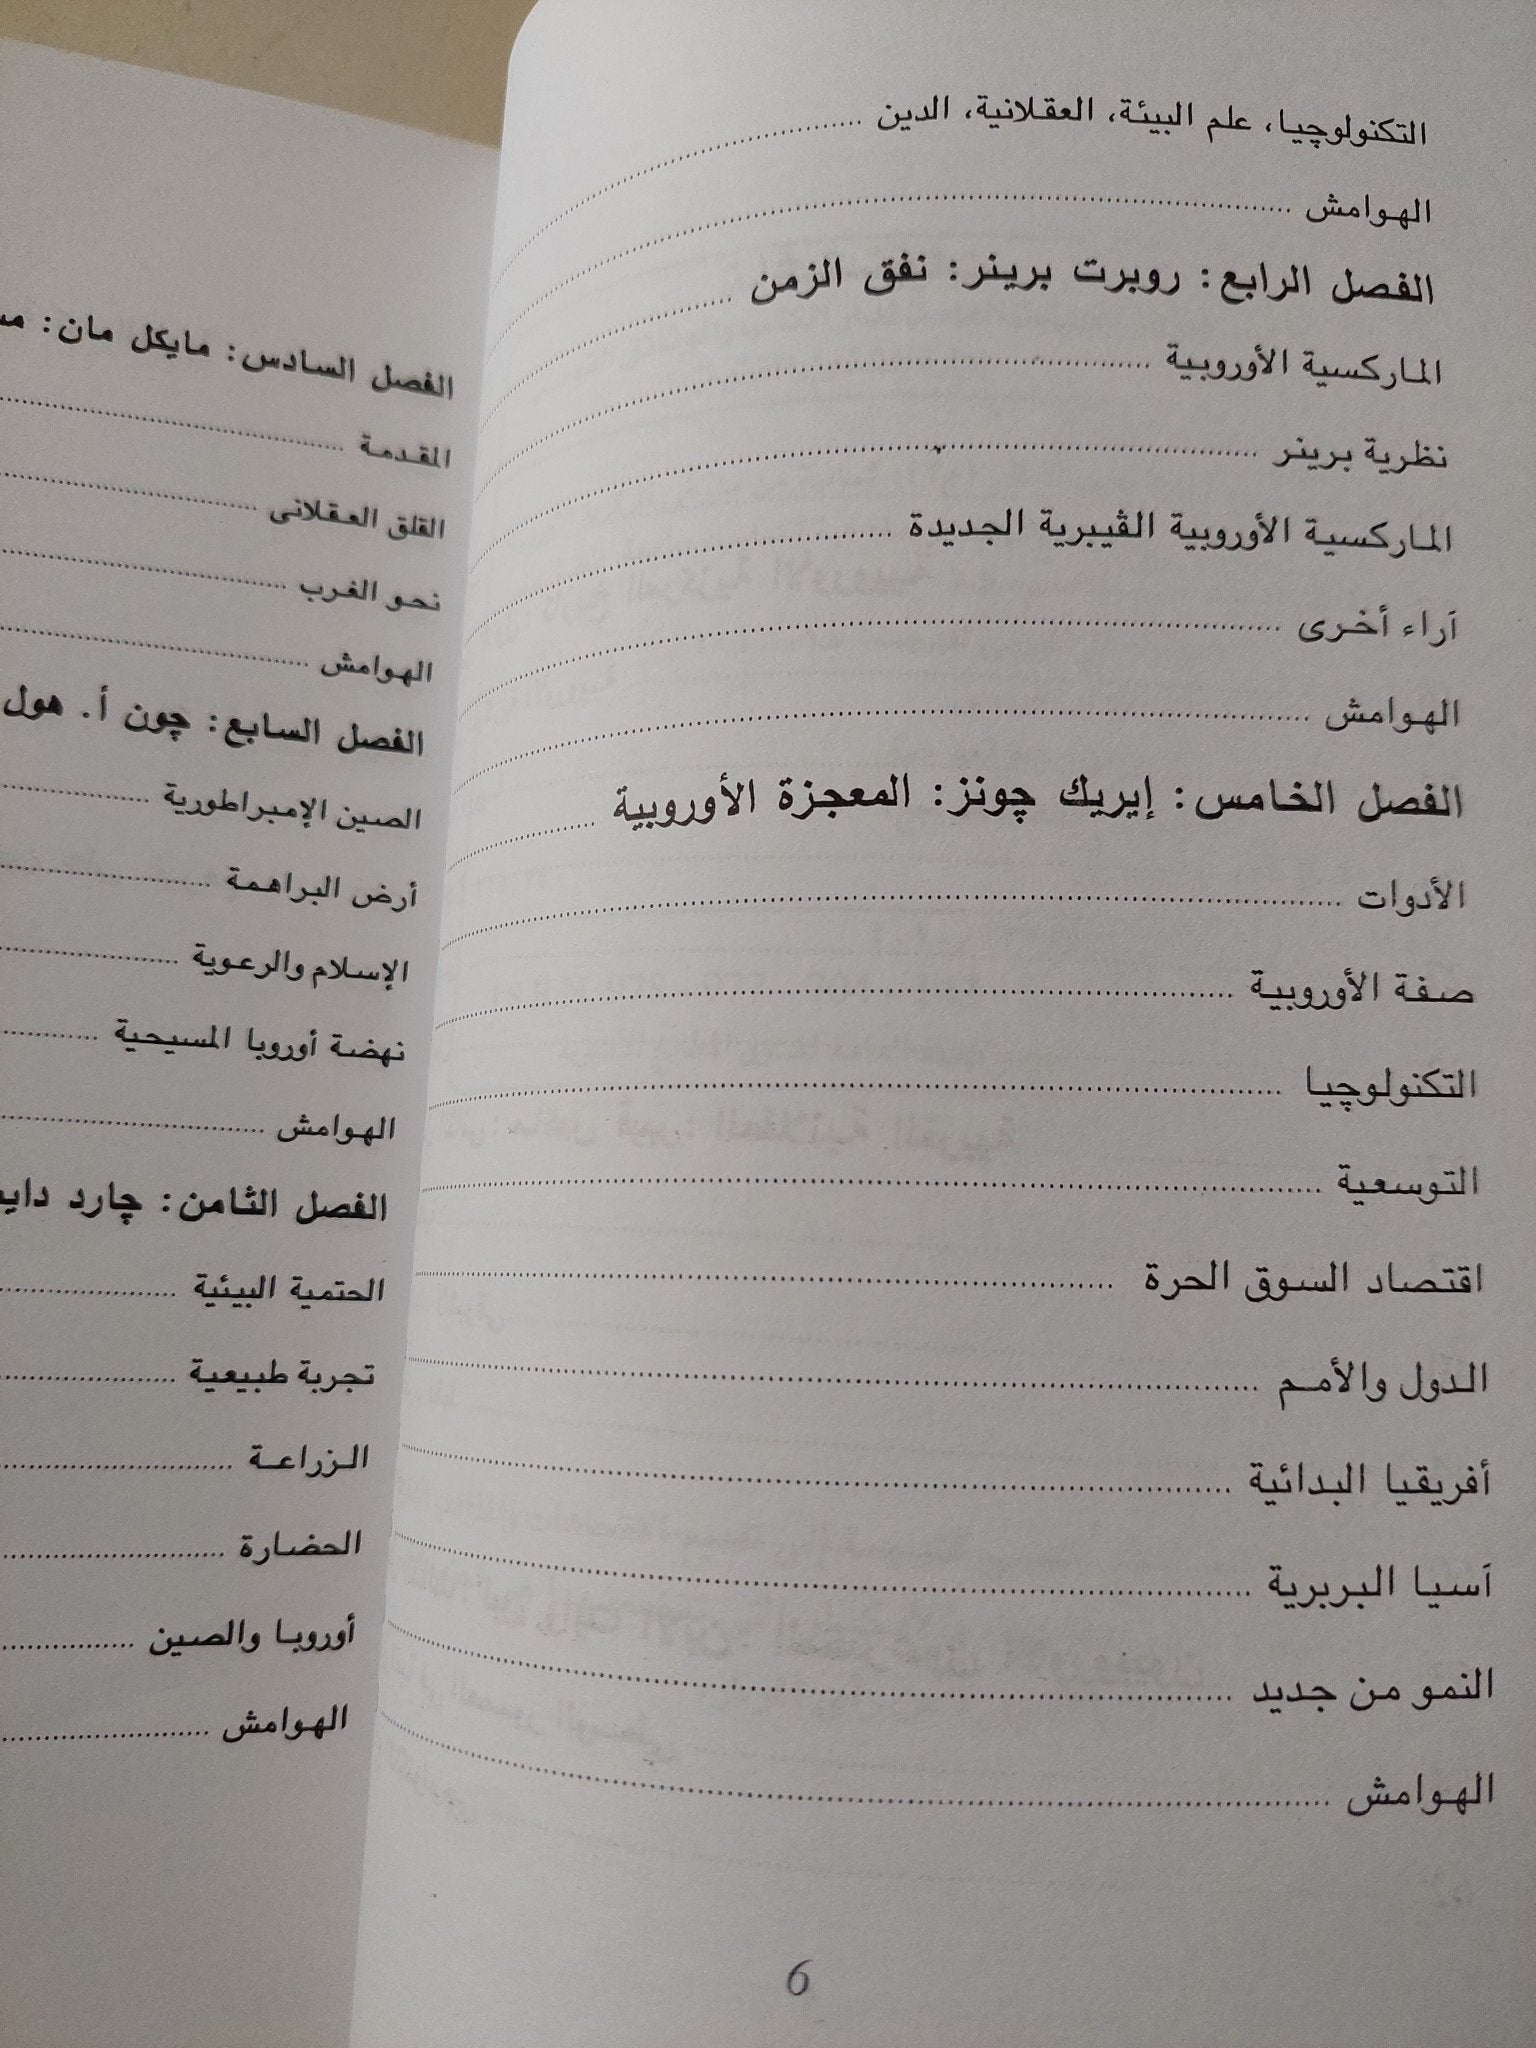 التكنولوچيا، علم البيئة، العقلانية، الدين ........................
الهوامش ........................
الفصل الرابع: روبرت برينر: نفق الزمن ........................
الماركسية الأوروبية ........................
نظرية برينر ........................
الماركسية الأوروبية الڤيبرية الجديدة ........................
آراء أخرى ........................
الهوامش ........................
الفصل الخامس: إيريك چونز: المعجزة الأوروبية ........................
الأدوات ........................
صفة الأوروبية ........................
التكنولوچيا ........................
التوسعية ........................
اقتصاد السوق الحرة ........................
الدول والأمم ........................
أفريقيا البدائية ........................
آسيا البربرية ........................
النمو من جديد ........................
الهوامش ........................
6
الفصل السادس: مايكل مان:
المقدمة ........................
القلق العقلانى ........................
نحو الغرب ........................
الهوامش ........................
الفصل السابع: چون أ. هول
الصين الإمبراطورية ........................
أرض البراهمة ........................
الإسلام والرعوية ........................
نهضة أوروبا المسيحية ........................
الهوامش ........................
الفصل الثامن: چارد
الحتمية البيئية ........................
تجربة طبيعية ........................
الزراعة ........................
الحضارة ........................
أوروبا والصين ........................
الهوامش ........................